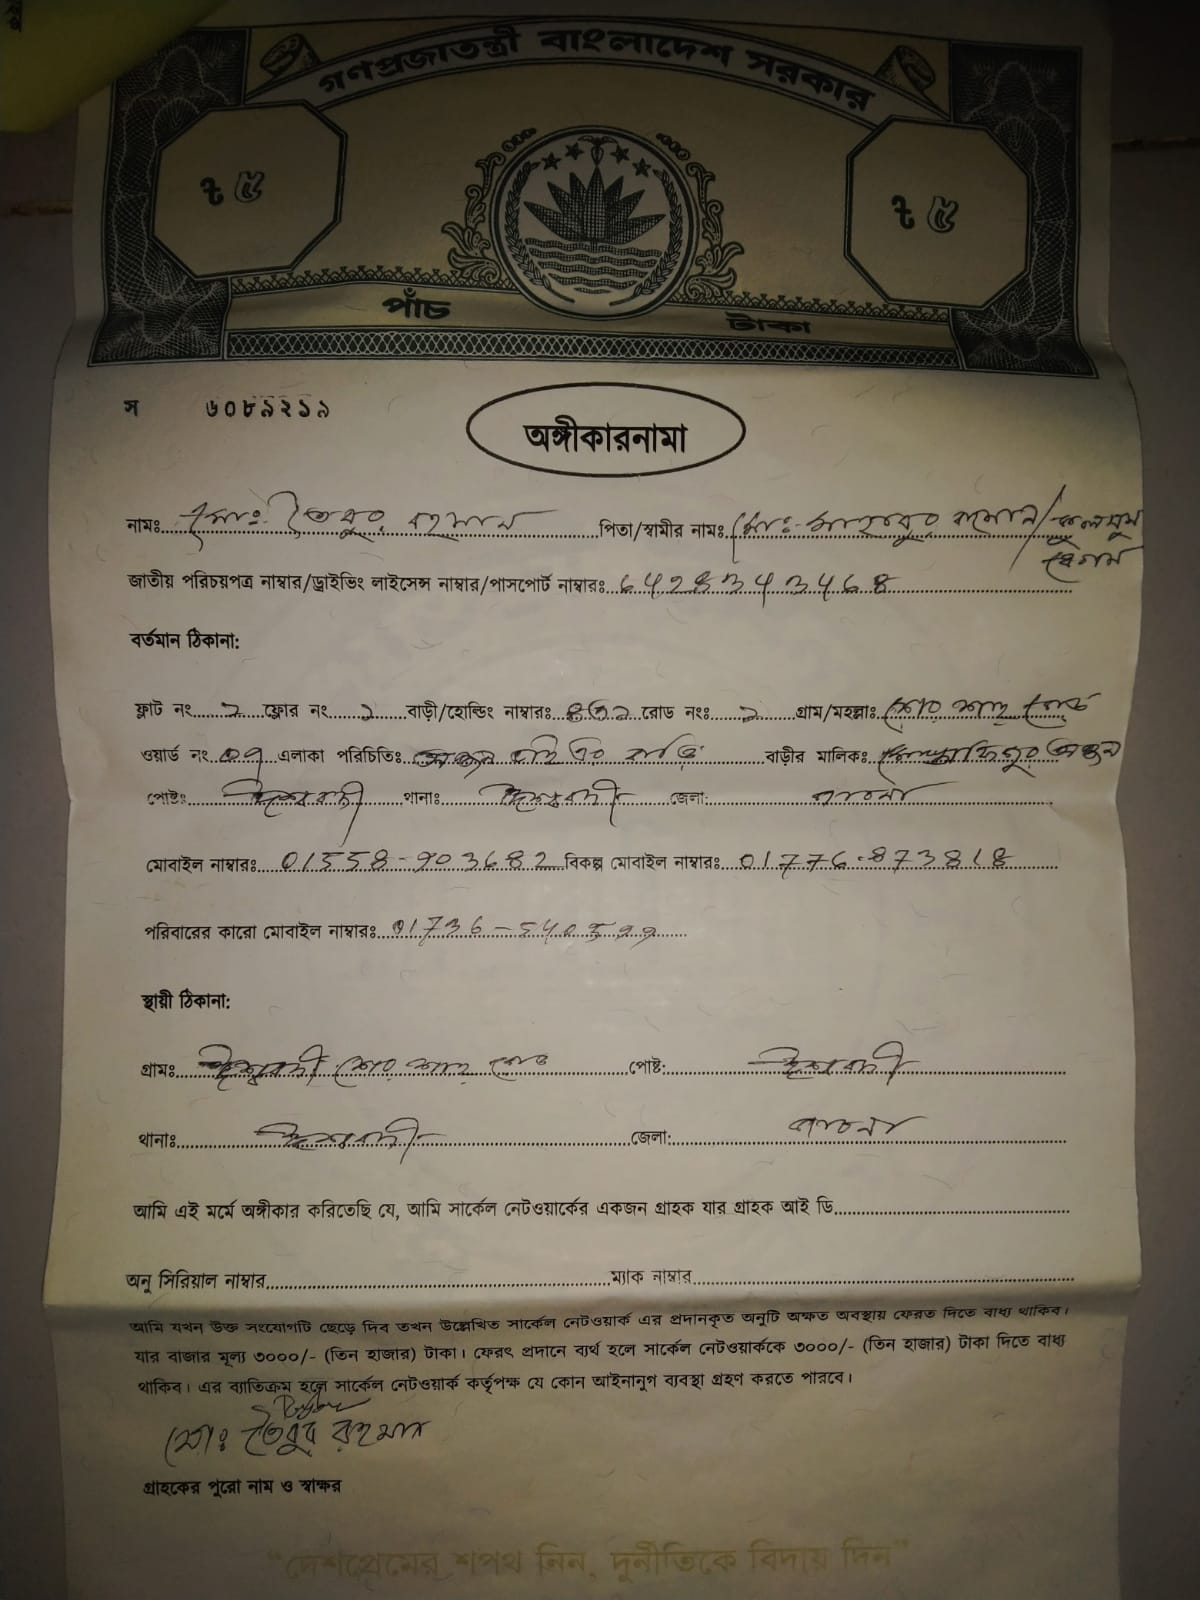 গণপ্রজাতন্ত্রী বাংলাদেশ সরকার
৳ ৫ ৳ ৫
পাঁচ টাকা
স ৬০৮৯২১৯
অঙ্গীকারনামা
নামঃ মোঃ তৈবুর রহমান পিতা/স্বামীর নামঃ মোঃ
বেগম
জাতীয় পরিচয়পত্র নাম্বার/ড্রাইভিং লাইসেন্স নাম্বার/পাসপোর্ট নাম্বারঃ 6428343468
বর্তমান ঠিকানা:
ফ্লাট নং ফ্লোর নং বাড়ী/হোল্ডিং নাম্বারঃ রোড নংঃ গ্রাম/মহল্লাঃ শের শাহ রোড
ওয়ার্ড নং 09 এলাকা পরিচিতিঃ বাড়ীর মালিকঃ
পোষ্টঃ ঈশ্বরদী থানাঃ ঈশ্বরদী জেলা: পাবনা
মোবাইল নাম্বারঃ 01558-903682 বিকল্প মোবাইল নাম্বারঃ 01776-873818
পরিবারের কারো মোবাইল নাম্বারঃ 01736-
স্থায়ী ঠিকানা:
গ্রামঃ ঈশ্বরদী শের শাহ রোড পোষ্ট: ঈশ্বরদী
থানাঃ ঈশ্বরদী জেলা: পাবনা
আমি এই মর্মে অঙ্গীকার করিতেছি যে, আমি সার্কেল নেটওয়ার্কের একজন গ্রাহক যার গ্রাহক আই ডি
অনু সিরিয়াল নাম্বার ম্যাক নাম্বার
আমি যখন উক্ত সংযোগটি ছেড়ে দিব তখন উল্লেখিত সার্কেল নেটওয়ার্ক এর প্রদানকৃত অনুটি অক্ষত অবস্থায় ফেরত দিতে বাধ্য থাকিব।
যার বাজার মূল্য ৩০০০/- (তিন হাজার) টাকা। ফেরৎ প্রদানে ব্যর্থ হলে সার্কেল নেটওয়ার্ককে ৩০০০/- (তিন হাজার) টাকা দিতে বাধ্য
থাকিব। এর ব্যাতিক্রম হলে সার্কেল নেটওয়ার্ক কর্তৃপক্ষ যে কোন আইনানুগ ব্যবস্থা গ্রহণ করতে পারবে।
মোঃ তৈবুর রহমান
গ্রাহকের পুরো নাম ও স্বাক্ষর
“দেশপ্রেমের শপথ নিন, দুর্নীতিকে বিদায় দিন”